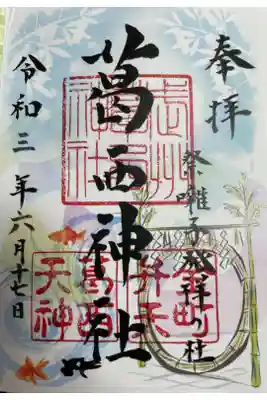 奉拝
祭囃子発祥の社
葛西神社
令和三年六月十七日
金町
弁天
葛西
天神